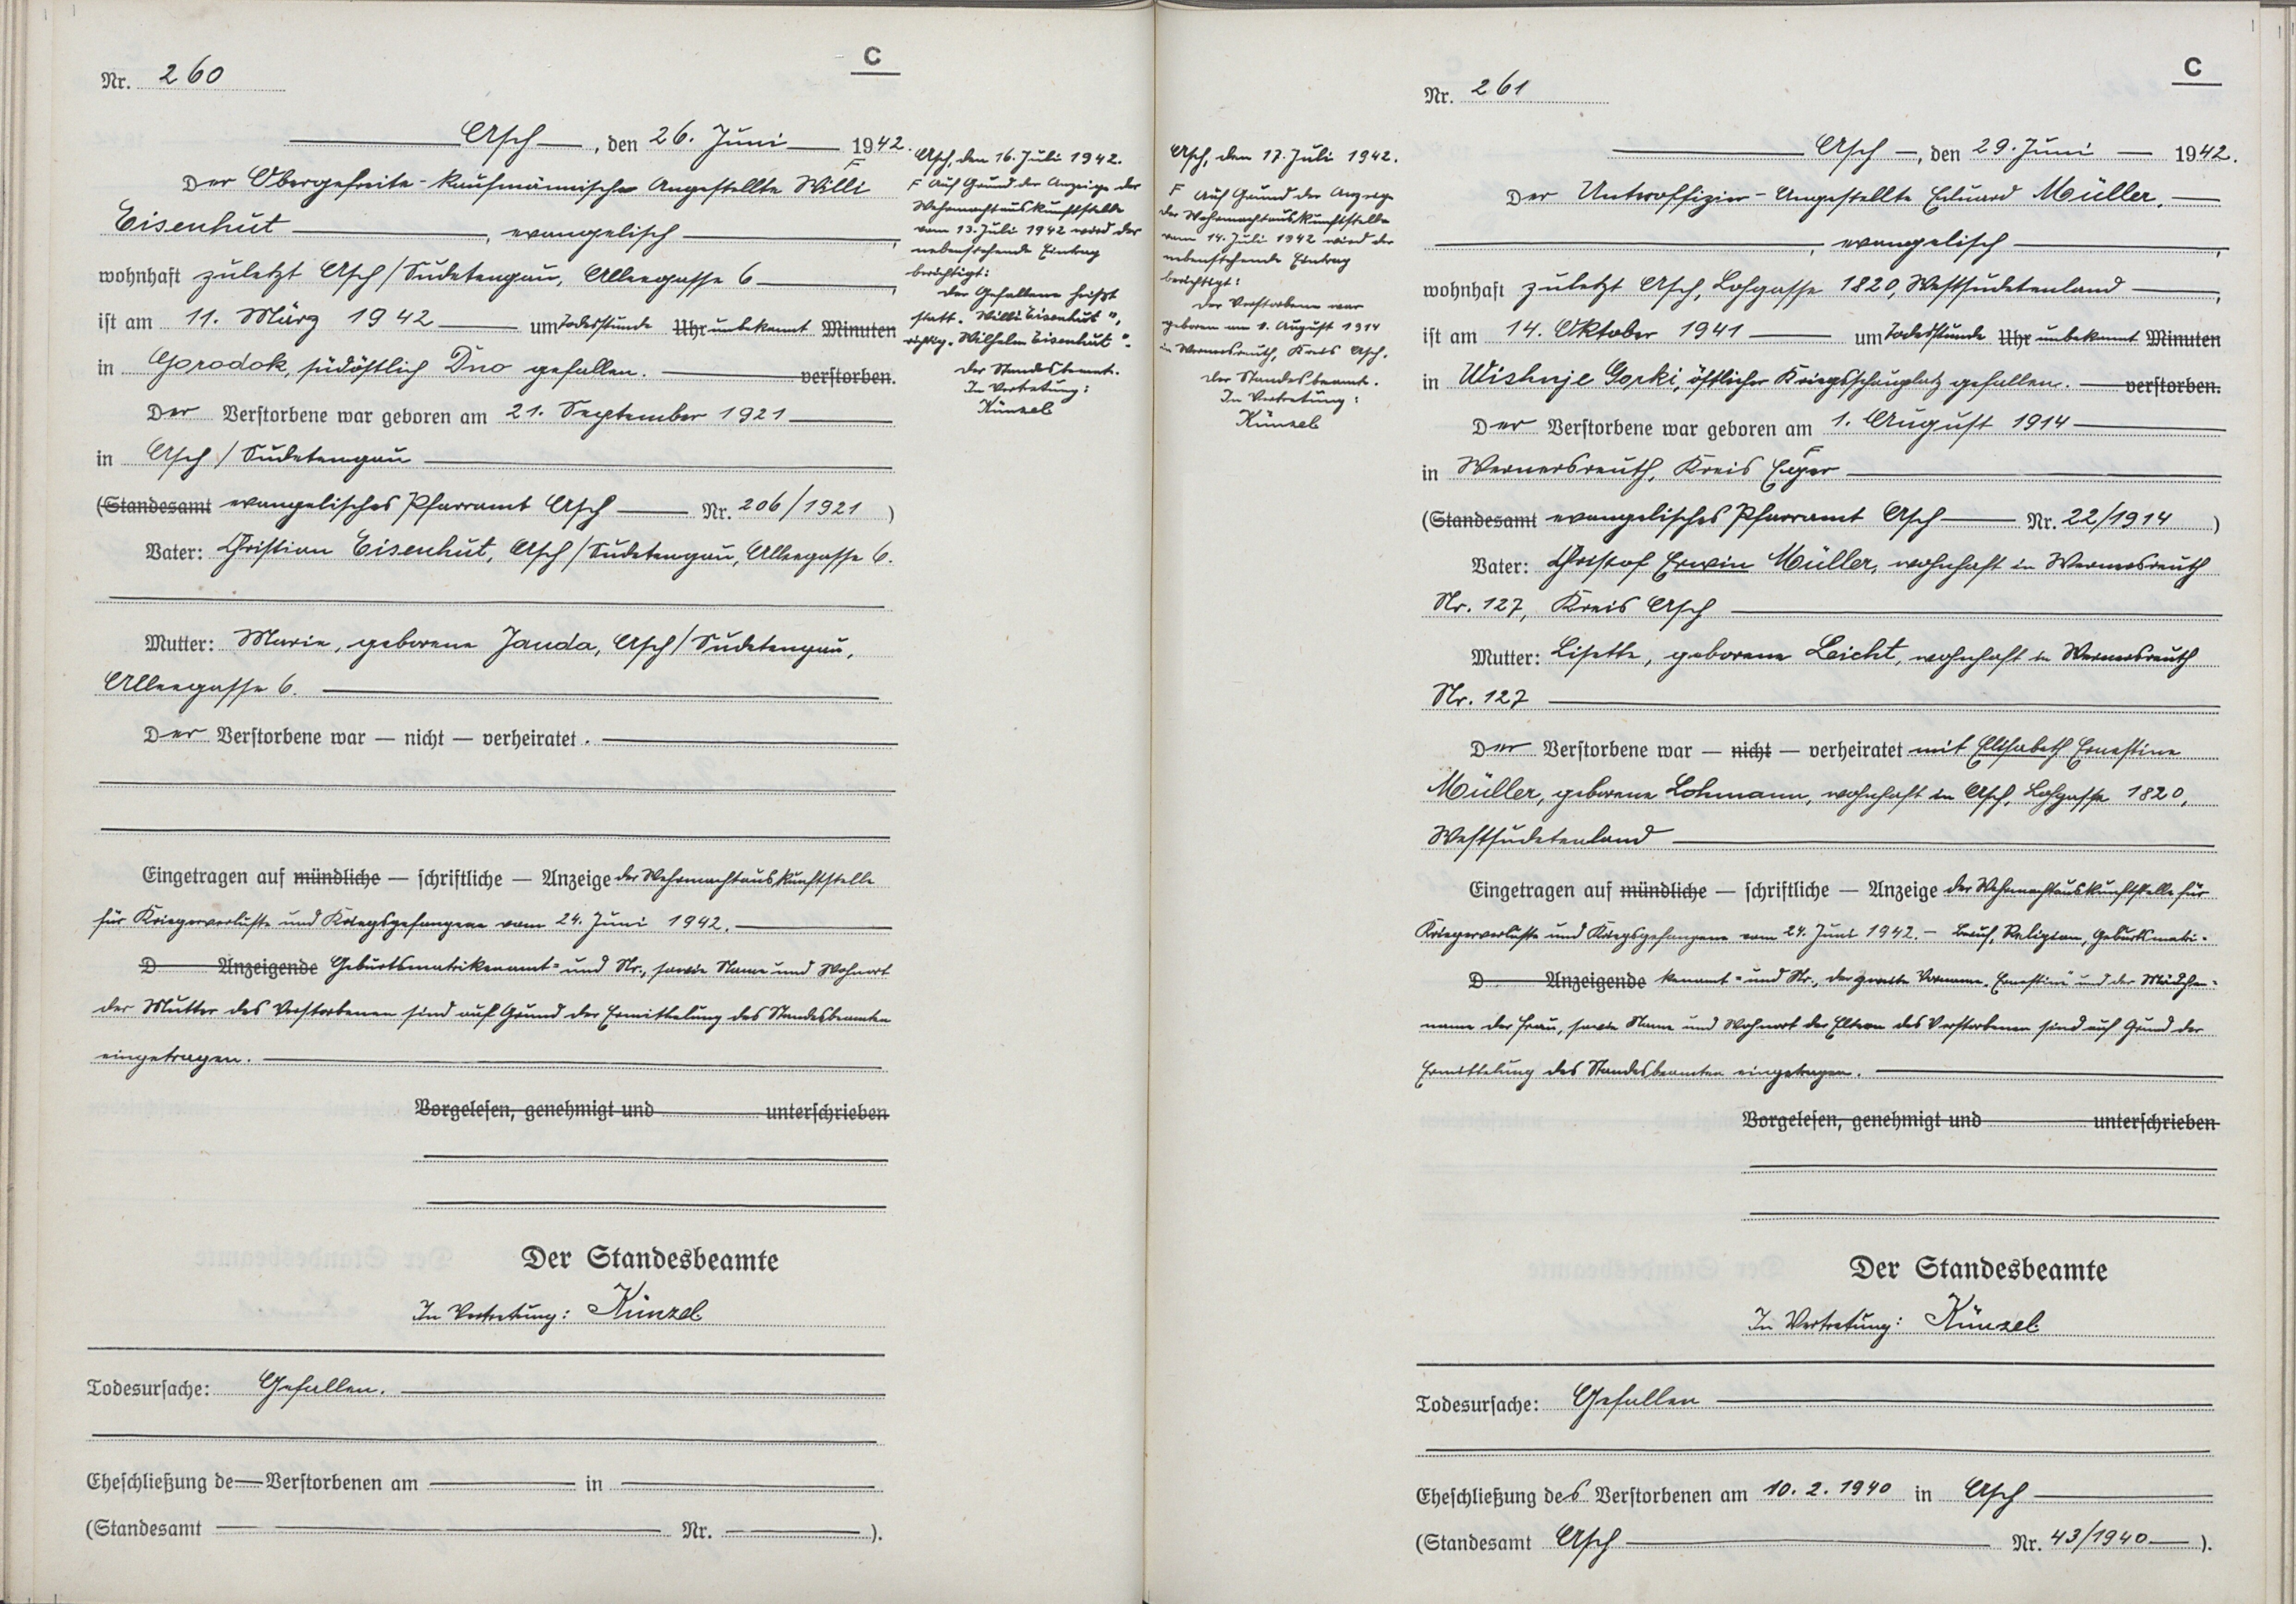 C
Nr. 260
Asch, den 26. Juni 1942.
Der Obergefreite - kaufmännische Angestellte Willi
Eisenhut, evangelisch,
wohnhaft zuletzt Asch/Sudetengau, Alleegasse 6,
ist am 11. März 1942 um Todesstunde Uhr unbekannt Minuten
in Gorodok, südöstlich Dno gefallen. verstorben.
Der Verstorbene war geboren am 21. September 1921
in Asch/Sudetengau
(Standesamt evangelisches Pfarramt Asch Nr. 206/1921)
Vater: Christian Eisenhut, Asch/Sudetengau, Alleegasse 6.
Mutter: Marie, geborene Janda, Asch/Sudetengau,
Alleegasse 6.
Der Verstorbene war — nicht — verheiratet.
Eingetragen auf mündliche — schriftliche — Anzeige der Wehrmachtauskunftstelle
für Kriegerverluste und Kriegsgefangene vom 24. Juni 1942.
D Anzeigende Geburtsmatrikenamt= und Nr., sowie Name und Wohnort
der Mutter des Verstorbenen sind auf Grund der Ermittelung des Standesbeamten
eingetragen.
Vorgelesen, genehmigt und unterschrieben
Der Standesbeamte
In Vertretung: Künzel
Todesursache: Gefallen.
Eheschließung de Verstorbenen am in
(Standesamt Nr. ).
Asch, den 16. Juli 1942.
F Auf Grund der Anzeige der
Wehrmachtauskunftstelle
vom 13. Juli 1942 wird der
nebenstehende Eintrag
berichtigt:
Der Gefallene heißt
statt „Willi Eisenhut",
richtig „Wilhelm Eisenhut".
Der Standesbeamte.
In Vertretung:
Künzel
Asch, den 17. Juli 1942.
F Auf Grund der Anzeige
der Wehrmachtauskunftstelle
vom 14. Juli 1942 wird der
nebenstehende Eintrag
berichtigt:
Der Verstorbene war
geboren am 1. August 1914
in Wernersreuth, Kreis Asch.
Der Standesbeamte.
In Vertretung:
Künzel
C
Nr. 261
Asch, den 29. Juni 1942.
Der Unteroffizier - Angestellte Eduard Müller,
, evangelisch,
wohnhaft zuletzt Asch, Lohgasse 1820, Westsudetenland,
ist am 14. Oktober 1941 um Todesstunde Uhr unbekannt Minuten
in Wishnje Gorki, östlicher Kriegsschauplatz gefallen. verstorben.
Der Verstorbene war geboren am 1. August 1914
F
in Wernersreuth, Kreis Eger
(Standesamt evangelisches Pfarramt Asch Nr. 22/1914)
Vater: Christof Erwin Müller, wohnhaft in Wernersreuth
Nr. 127, Kreis Asch
Mutter: Lisette, geborene Leicht, wohnhaft in Wernersreuth
Nr. 127
Der Verstorbene war — nicht — verheiratet mit Elisabeth Ernestine
Müller, geborene Lohmann, wohnhaft in Asch, Lohgasse 1820,
Westsudetenland
Eingetragen auf mündliche — schriftliche — Anzeige der Wehrmachtauskunftstelle für
Kriegerverluste und Kriegsgefangene vom 24. Juni 1942. - Beruf, Religion, Geburtsmatri=
D Anzeigende kenamt= und Nr., der zweite Vorname „Ernestine" und der Mädchen=
name der Frau, sowie Name und Wohnort der Eltern des Verstorbenen sind auf Grund der
Ermittelung des Standesbeamten eingetragen.
Vorgelesen, genehmigt und unterschrieben
Der Standesbeamte
In Vertretung: Künzel
Todesursache: Gefallen
Eheschließung des Verstorbenen am 10. 2. 1940 in Asch
(Standesamt Asch Nr. 43/1940).